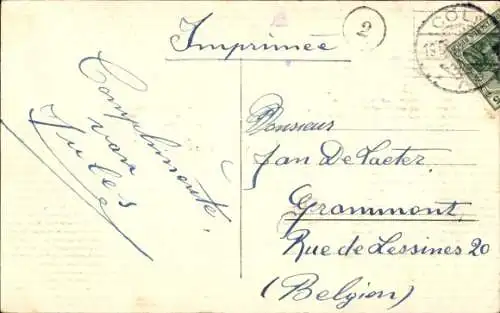 Imprimée
2
CÖLN
Complimente
van
Jules
Monsieur
Jan De Laeter.
Grammont,
Rue de Lessines 20
(Belgien)